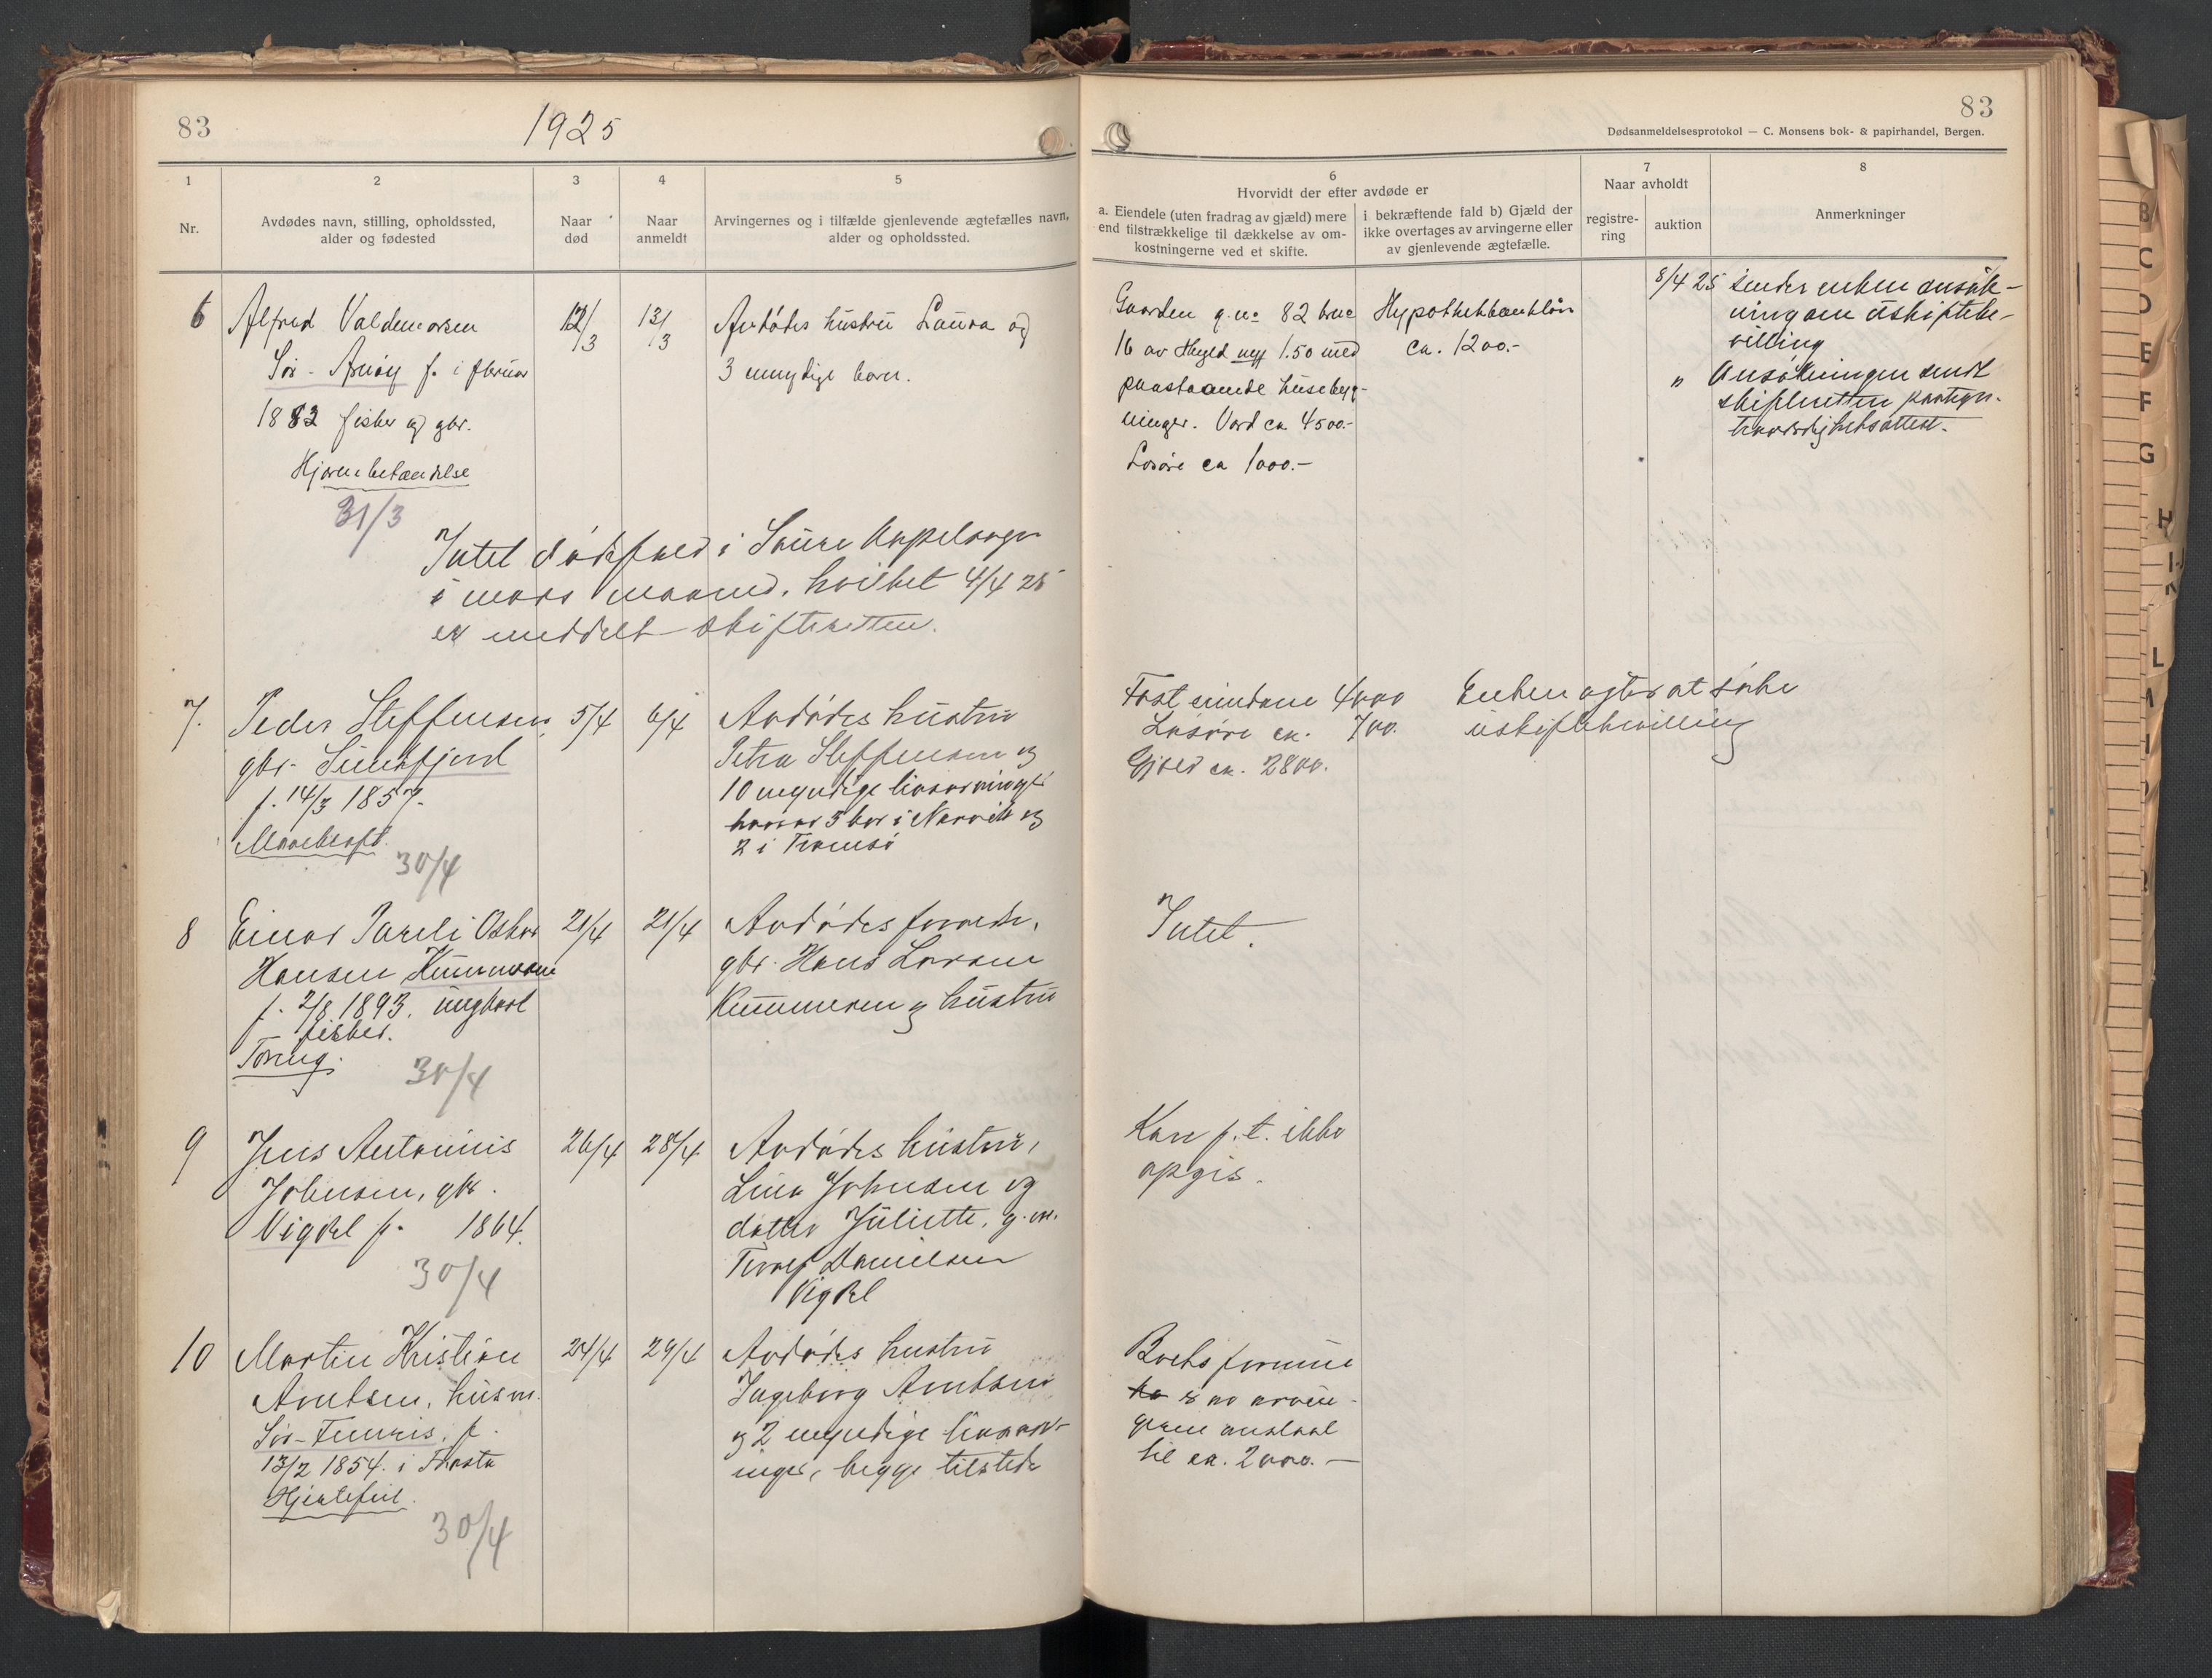 83
1925
83
Dødsanmeldelsesprotokol — C. Monsens bok- & papirhandel, Bergen.
1
2
3
4
5
6
7
8
Nr.
Avdødes navn, stilling, opholdssted,
alder og fødested
Naar
død
Naar
anmeldt
Arvingernes og i tilfælde gjenlevende ægtefælles navn,
alder og opholdssted.
Hvorvidt der efter avdøde er
a. Eiendele (uten fradrag av gjæld) mere
end tilstrækkelige til dækkelse av om-
kostningerne ved et skifte.
i bekræftende fald b) Gjæld der
ikke overtages av arvingerne eller
av gjenlevende ægtefælle.
Naar avholdt
registre-
ring
auktion
Anmerkninger
6
Alfred Valdemarsen
Sør-Arnøy f. i februar
1882 fisker og gbr.
Hjernebetændelse
31/3
12/3
13/3
Avdødes hustru Laura og
3 umyndige barn.
Gaarden g.no 82 bno
16 av skyld 1.50 med
paastaaende husebyg-
ninger. Verd ca 4500.-
Løsøre ca 1000.-
Hypothekbanklån
ca. 1200.-
8/4 25 sender enken ansøk-
ning om uskiftebe-
villing
" Ansøkningen sendt
skifteretten
Intet dødsfald i Kapelsogn
i mars maaned, hvilket 4/4 25
er meddelt skifteretten.
7.
Peder Steffensen,
gbr.
f. 14/3 1857.
Mavekræft.
30/4
5/4
6/4
Avdødes hustru
Petra Steffensen og
10 myndige livsarvinger
hvorav 5 bor i Narvik og
2 i Tromsø
Fast eiendom 4000
Løsøre ca. 700.
Gjæld ca. 2800.
Enken agter at søke
uskiftebevilling
8
Einar Pareli Oskar
Hansen Kummeren
f. 2/8 1893. ungkarl
fisker.
Tæring.
30/4
21/4
21/4
Avdødes forældre,
gbr. Hans Larsen
Kummeren og hustru
Intet.
9
Jens Antonius
Johnsen, gbr.
Vigdel f. 1864.
30/4
26/4
28/4
Avdødes hustru,
Lina Johnsen og
datter Juliette, g.m.
Danielsen
Vigdel
Kan p.t. ikke
opgis.
10
Martin Kristian
Arntsen, husm.
f.
13/2 1854. i
Hjertefeil.
30/4
24/4
29/4
Avdødes hustru
Ingeborg Arntsen
og 2 myndige livsarv-
inger, begge tilstede
Boets formue
er av arvin-
gerne anslaat
til ca. 2000.—
B
C
D
E
F
G
H
L